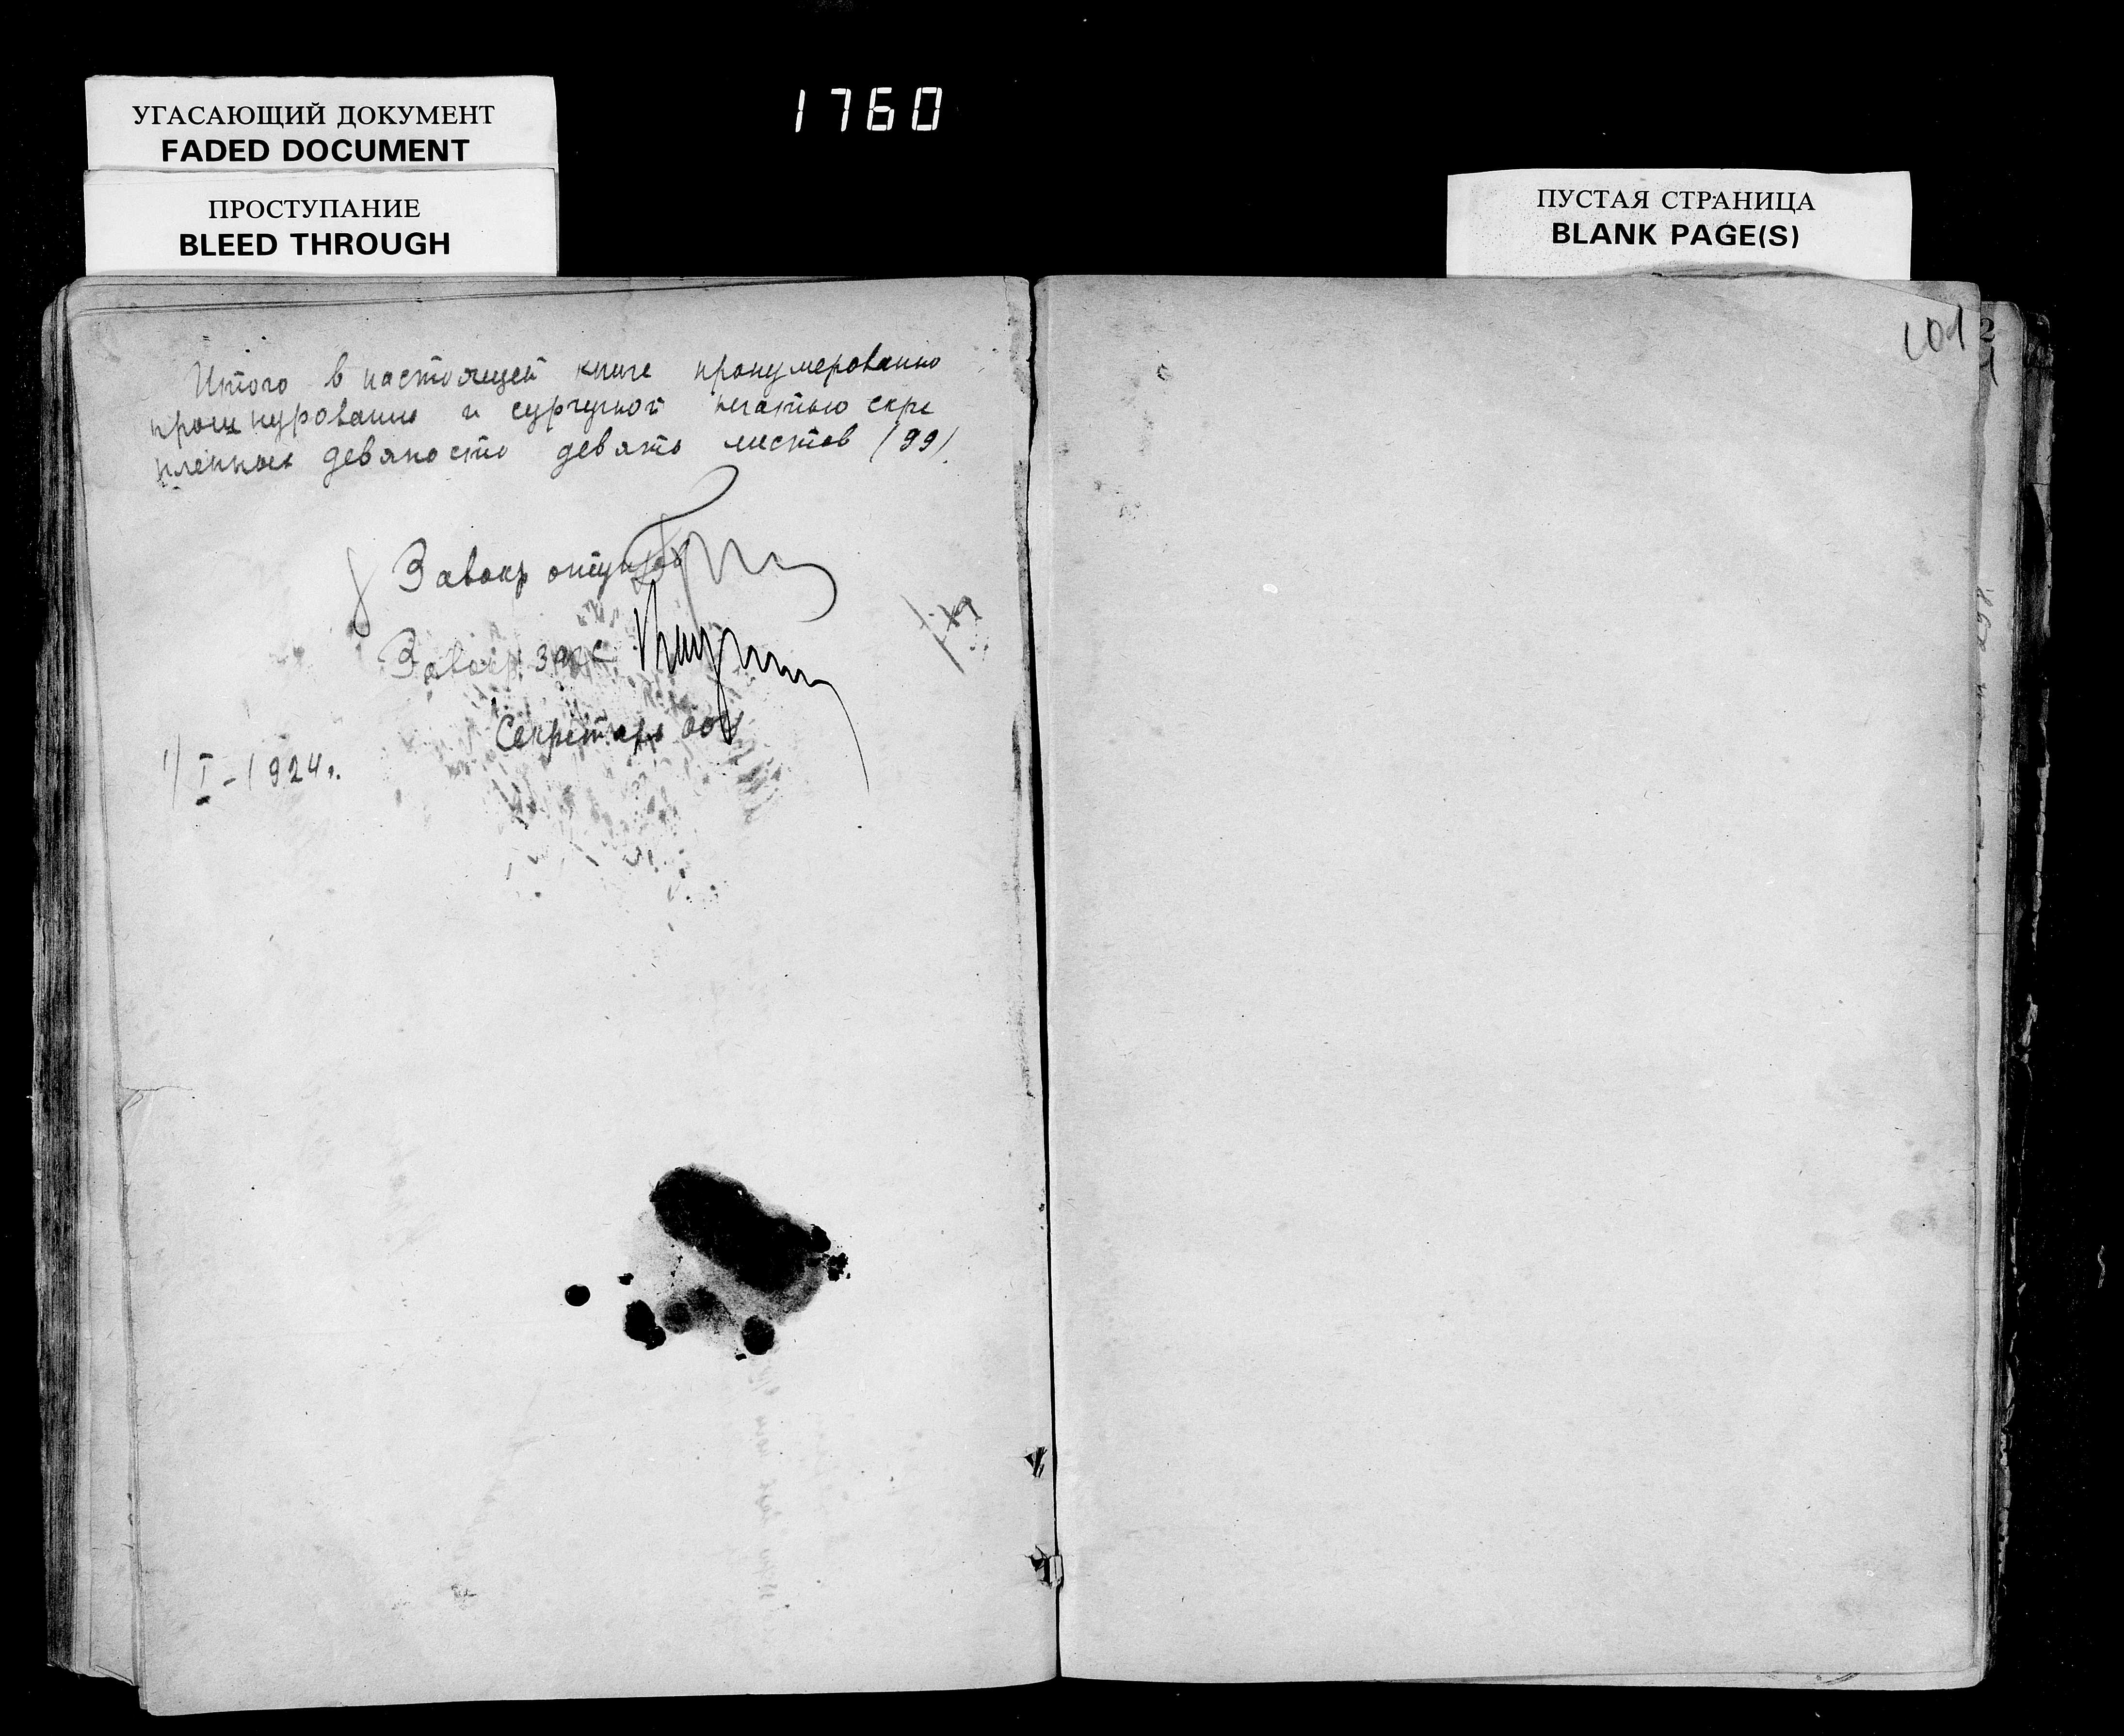 УГАСАЮЩИЙ ДОКУМЕНТ
FADED DOCUMENT
ПРОСТУПАНИЕ
BLEED THROUGH
1760
ПУСТАЯ СТРАНИЦА
BLANK PAGE(S)
Итого в настоящей книге пронумерованно
прошнурованно и сургучной печатью скре
пленных девяносто девять листов /99/.
Завокр
Завокр. загс
Секретарь
1/I-1924г.
101